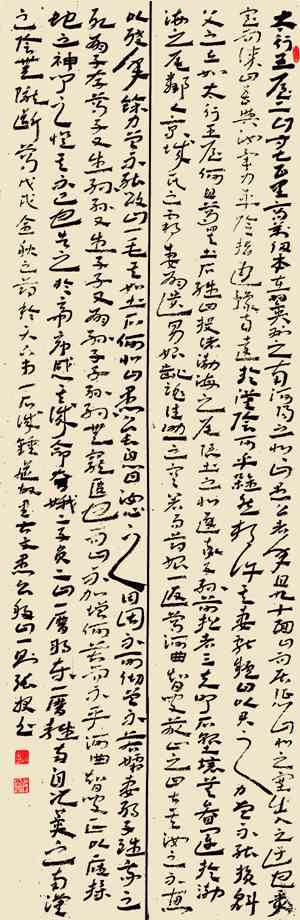 太行王屋二山方七百里高萬仞本在冀州之南河陽之北北山愚公者年且九十面山而居懲山北之塞出入之迂也聚
室而謀曰吾與汝畢力平險指通豫南達於漢陰可乎雜然相許其妻獻疑曰以君之力曾不能損魁
父之丘如太行王屋何且焉置土石雜曰投諸渤海之尾隱土之北遂率子孫荷擔者三夫叩石墾壤箕畚運於渤
海之尾鄰人京城氏之孀妻有遺男始齔跳往助之寒暑易節始一返焉河曲智叟笑而止之曰甚矣汝之不惠
以殘年餘力曾不能毀山一毛其如土石何北山愚公長息曰汝心之固固不可徹曾不若孀妻弱子雖我之
死有子存焉子又生孫孫又生子子又有子子又有孫子子孫孫無窮匱也而山不加增何苦而不平河曲智叟亡以應操
蛇之神聞之懼其不已也告之於帝帝感其誠命夸娥氏二子負二山一厝朔東一厝雍南自此冀之南漢
之陰無隴斷焉戊戌金秋之 愚公移山一則張